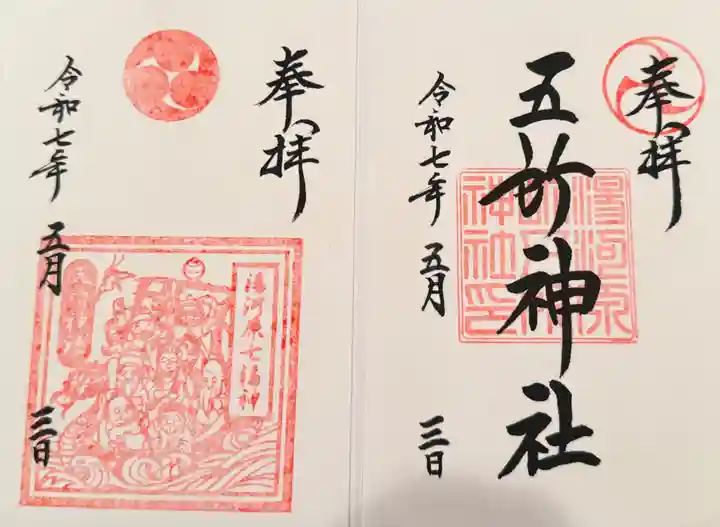 奉拝
五所神社
湯河原
五所
神社印
令和七年 五月 三日
奉拝
令和七年 五月 三日
湯河原七福神